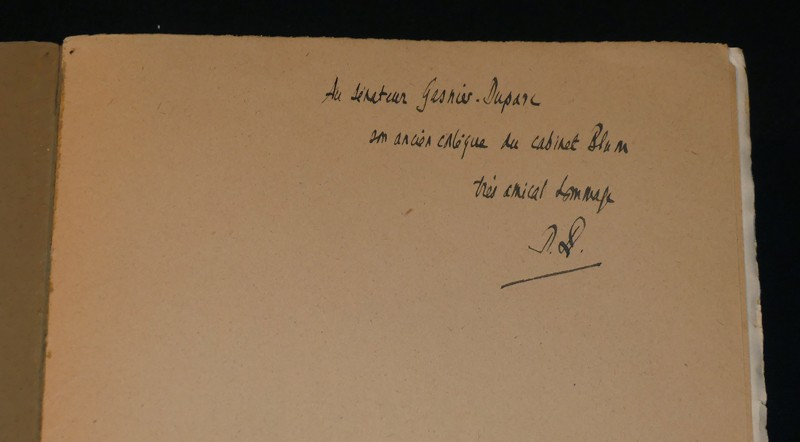 Au sénateur Gasnier-Duparc
son ancien collègue du cabinet Blum
très amical hommage